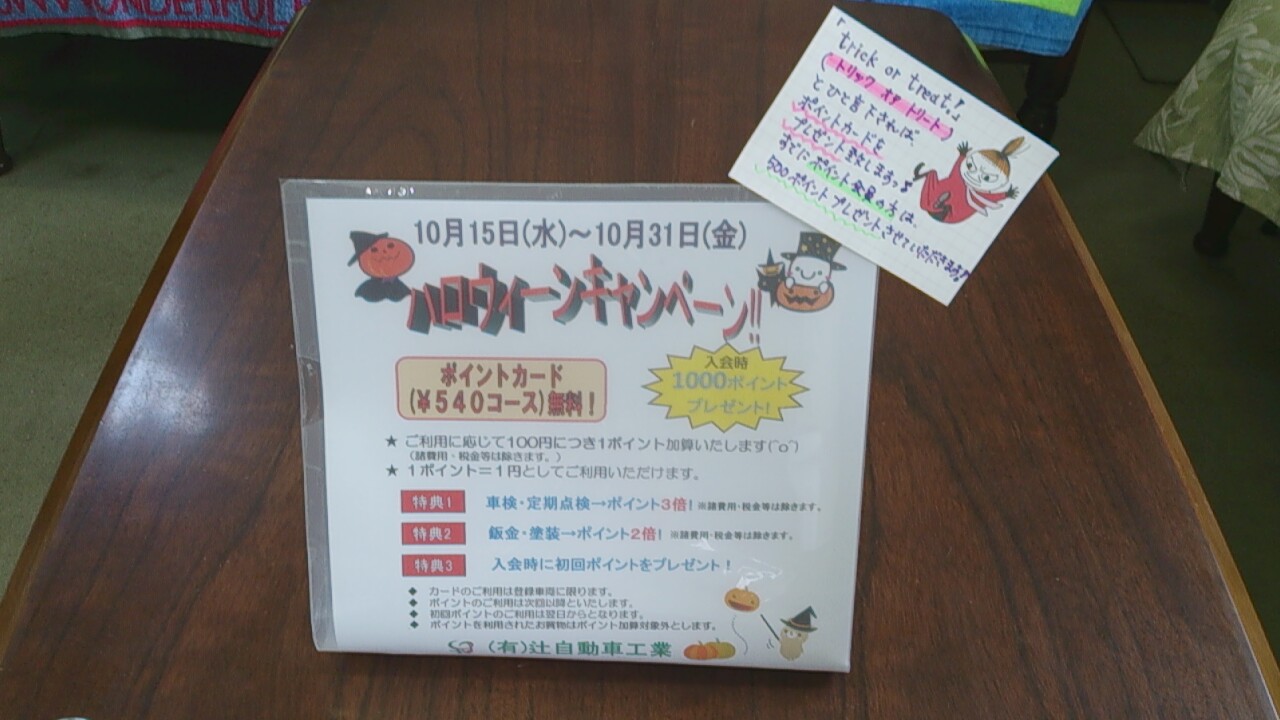 「trick or treat!」
(トリック オア トリート)
とひと言下されば、
ポイントカードを
プレゼント致しまうっ♪
すでにポイント会員の方は、
500ポイントプレゼントさせていただきます!
10月15日(水)～10月31日(金)
ハロウィーンキャンペーン!!
ポイントカード
(¥540コース)無料!
入会時
1000ポイント
プレゼント!
★ ご利用に応じて100円につき1ポイント加算いたします(^o^)
(諸費用・税金等は除きます。)
★ 1ポイント=1円としてご利用いただけます。
特典1 車検・定期点検→ポイント3倍! ※諸費用・税金等は除きます。
特典2 鈑金・塗装→ポイント2倍! ※諸費用・税金等は除きます。
特典3 入会時に初回ポイントをプレゼント!
◆ カードのご利用は登録車両に限ります。
◆ ポイントのご利用は次回以降といたします。
◆ 初回ポイントのご利用は翌日からとなります。
◆ ポイントを利用されたお買物はポイント加算対象外とします。
(有)辻自動車工業